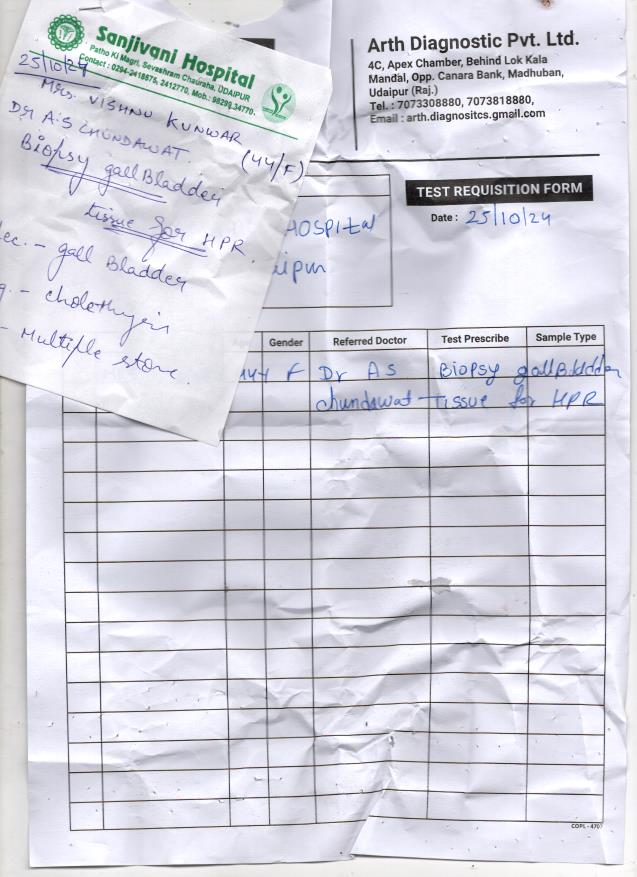 Sanjivani Hospital
Patho Ki Magri, Sevashram Chauraha, UDAIPUR
Contact : 0294-2418575, 2412770, Mob.: 98299 34770.
25/10/24
Mrs. VISHNU KUNWAR
(44/F)
Dr A.S CHUNDAWAT.
Biopsy gall Bladder
tissue for HPR
ec. - gall Bladder
g. - cholethysis
- Multiple stone.
Arth Diagnostic Pvt. Ltd.
4C, Apex Chamber, Behind Lok Kala
Mandal, Opp. Canara Bank, Madhuban,
Udaipur (Raj.)
Tel. : 7073308880, 7073818880,
Email : arth.diagnositcs.gmail.com
TEST REQUISITION FORM
Date : 25/10/24
HOSPITAL
aipur
Age Gender Referred Doctor Test Prescribe Sample Type
44 F Dr AS Biopsy gall Bladder
chundawat - Tissue for HPR
COPL - 470